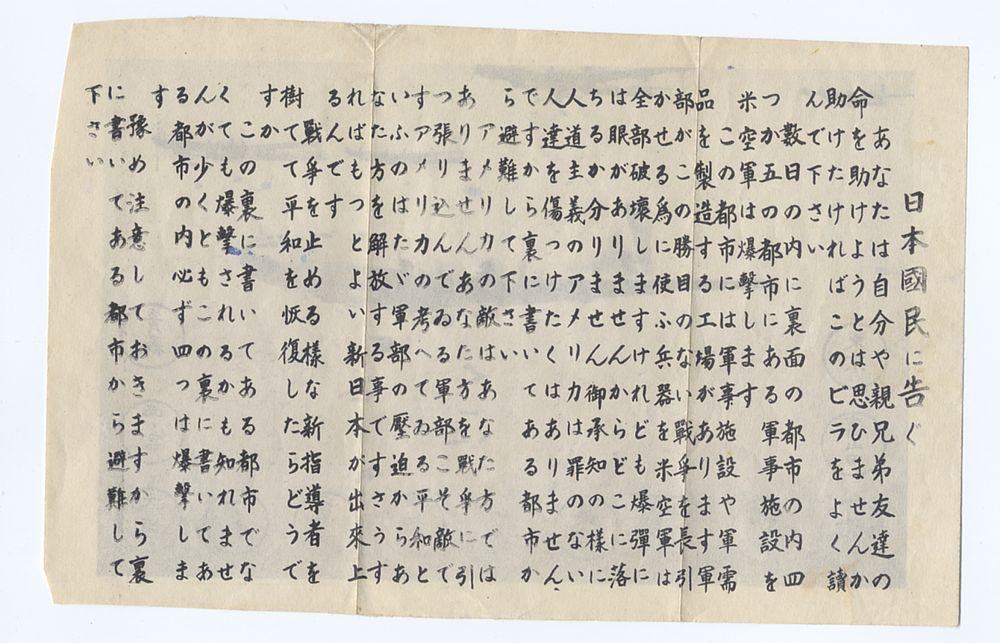 日本國民に告ぐ
あなたは自分や親兄弟友達の
命を助けようとは思ひませんか
助けたければこのビラをよく讀
んで下さい
數日の内に裏面の都市の内四
つか五つの都市にある軍事施設を
米空軍は爆撃します
この都市には軍事施設や軍需
品を製造する工場があります軍
部がこの勝目のない戰爭を長引
かせる爲に使ふ兵器を米空軍は
全部破壞しますけれども爆彈に
は眼がありませんからどこに落
ちるか分りません御承知の様に
人道主義のアメリカは罪のない
人達を傷つけたくはありません
ですから裏に書いてある都市か
ら避難して下さい
アメリカの敵はあなた方では
ありませんあなた方を戰爭に引
つ張り込んでゐる軍部こそ敵で
すアメリカの考へてゐる平和と
いふのはたゞ軍部の壓迫からあ
なた方を解放する事ですさうす
ればもつとよい新日本が出來上
るんです
戰爭を止める様な新指導者を
樹てて平和を恢復したらどうで
すか
この裏に書いてある都市でな
くても爆撃されるかも知れませ
んが少くともこの裏に書いてあ
る都市の内必ず四つは爆撃しま
す
豫め注意しておきますから裏
に書いてある都市から避難して
下さい